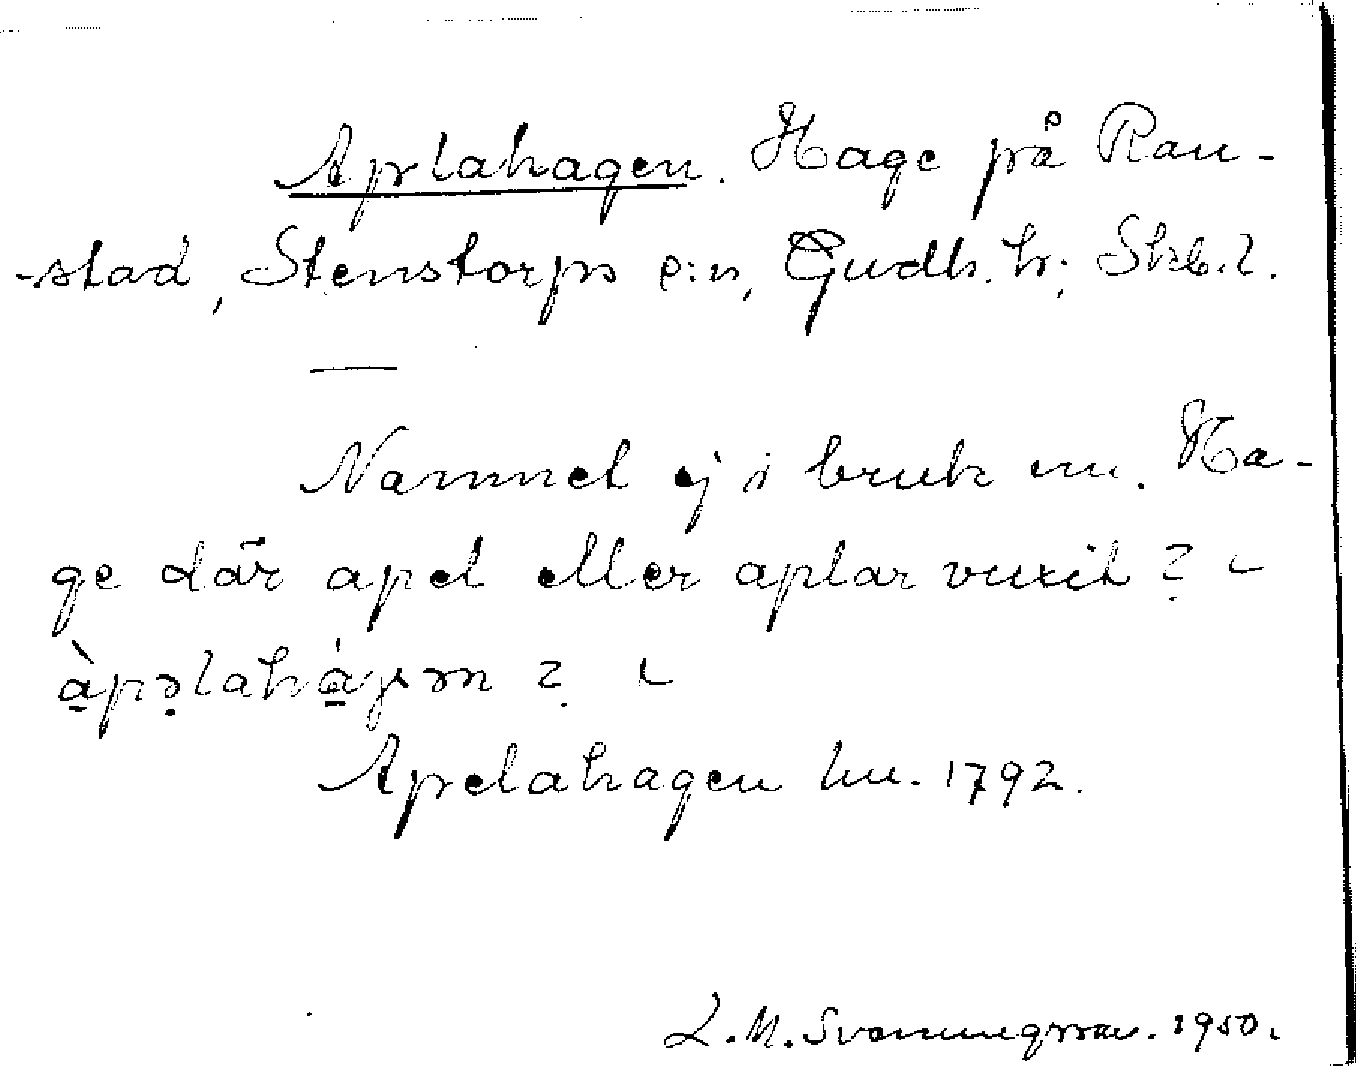 Aplahagen. Hage på Ran-
-stad, Stenstorps s:n, Gudh. hr; Skb. l.
Namnet ej i bruk nu. Ha-
ge där apel eller aplar vuxit?
àpəlahág
Apelahagen lm. 1792.
L. M. Svanungsson. 1950.